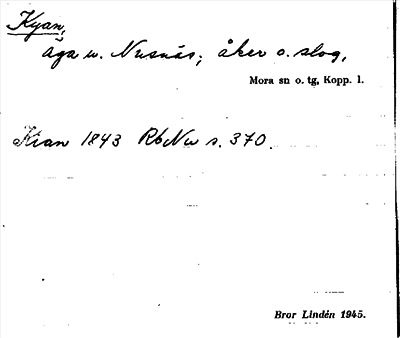 Kyan,
äga w. Nusnäs; åker o. slog,
Mora sn o. tg, Kopp. l.
Kian 1843 RbNw s. 370.
Bror Lindén 1945.